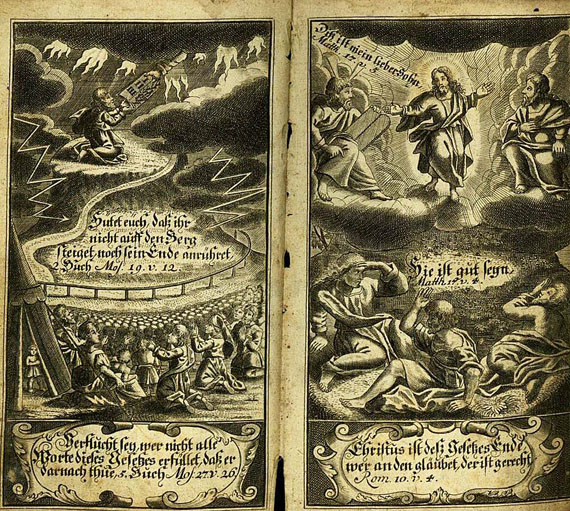 Hütet euch, daß ihr
nicht auff den Berg
steiget, noch sein Ende anrühret
2. Buch Mos. 19. v. 12.
Verflucht sey, wer nicht alle
Worte dieses Gesetzes erfüllet, daß er
darnach thue, 5. Buch Mos. 27. v. 26
Diß ist mein lieber Sohn.
Matth. 17. v. 5.
Hie ist gut seyn.
Matth. 17. v. 4.
Christus ist deß Gesetzes Ende,
wer an den gläubet, der ist gerecht.
Rom. 10. v. 4.